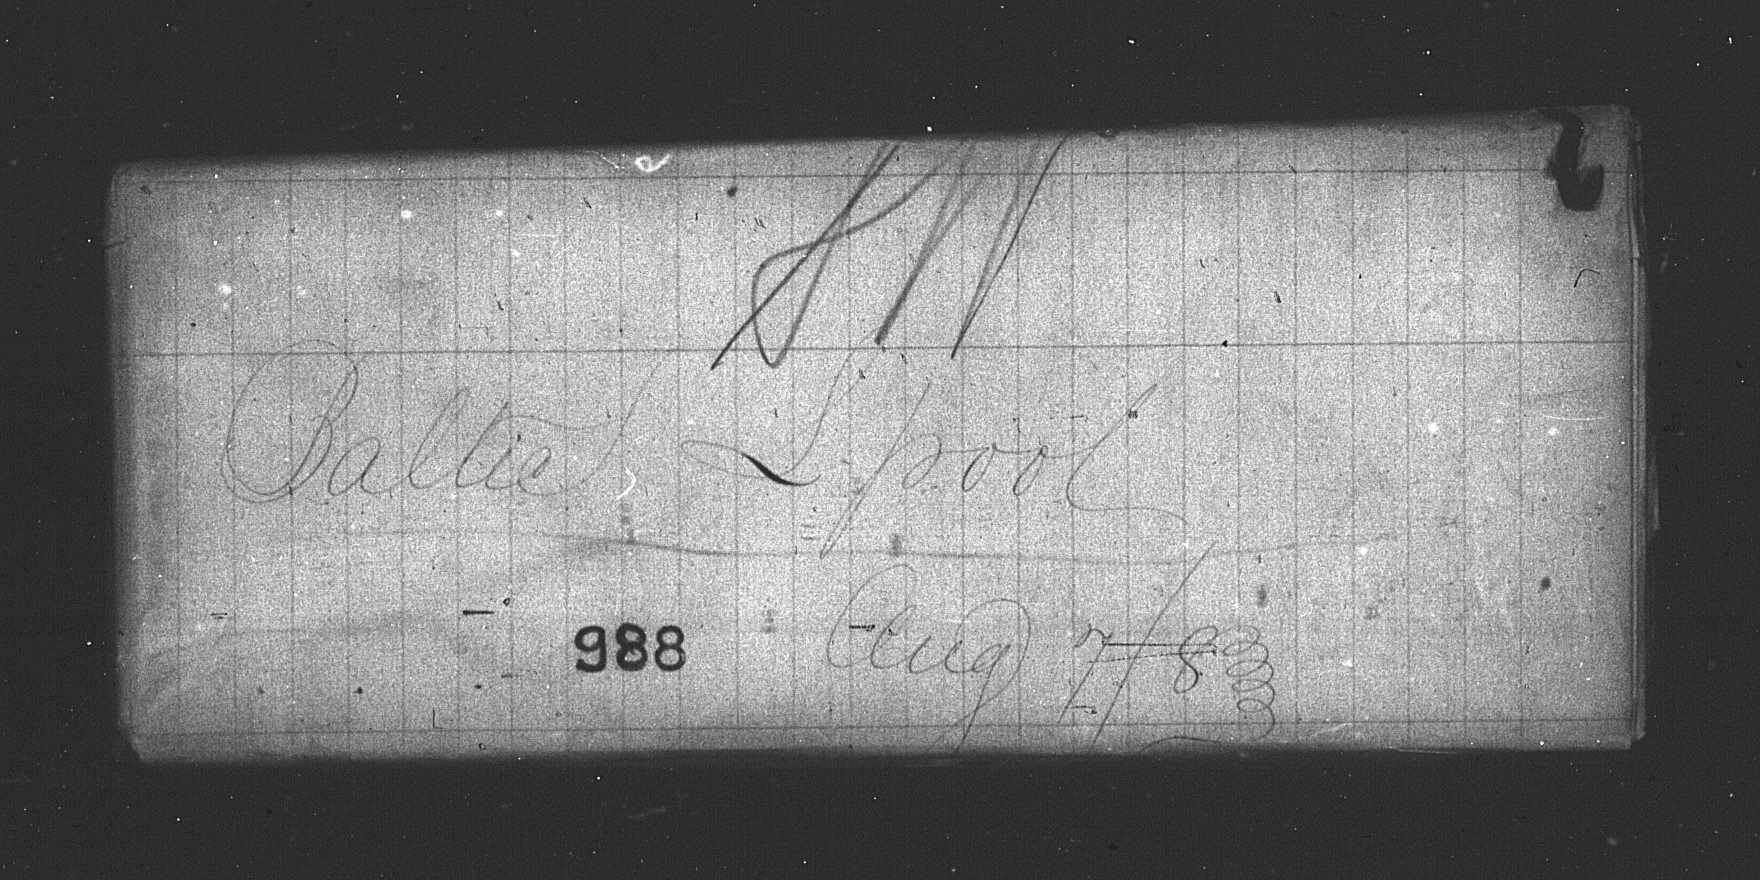 Baltic L'pool
988 Aug 7/83